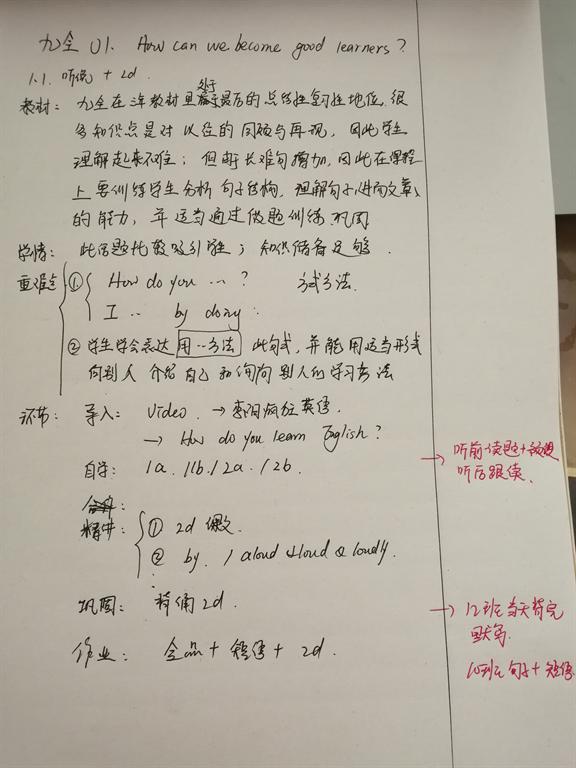 九全 U1. How can we become good learners?
1.1. 听说 + 2d.
教材: 九全在三年教材里处于最后的总结性复习性地位, 很
多知识点是对以往的回顾与再现, 因此学生
理解起来不难; 但由于长难句增加, 因此在课程
上要训练学生分析句子结构, 理解句子进而文章
的能力, 并适当通过做题训练巩固
学情: 此话题比较吸引性; 知识储备足够.
重难点 ① How do you ... ? 方式方法.
I ... by doing.
② 学生学会表达 用...方法 此句式, 并能用适当形式
向别人介绍自己和询问别人的学习方法
环节: 导入: video. → 李阳疯狂英语.
→ How do you learn English?
自学: 1a. 1b. 2a. 2b. → 听前读题+
听后跟读.
精讲: ① 2d
② by. / aloud &loud & loudly.
巩固: 背诵 2d. → 12班当天背完
作业: 全品 + 短语 + 2d. 句子+短语